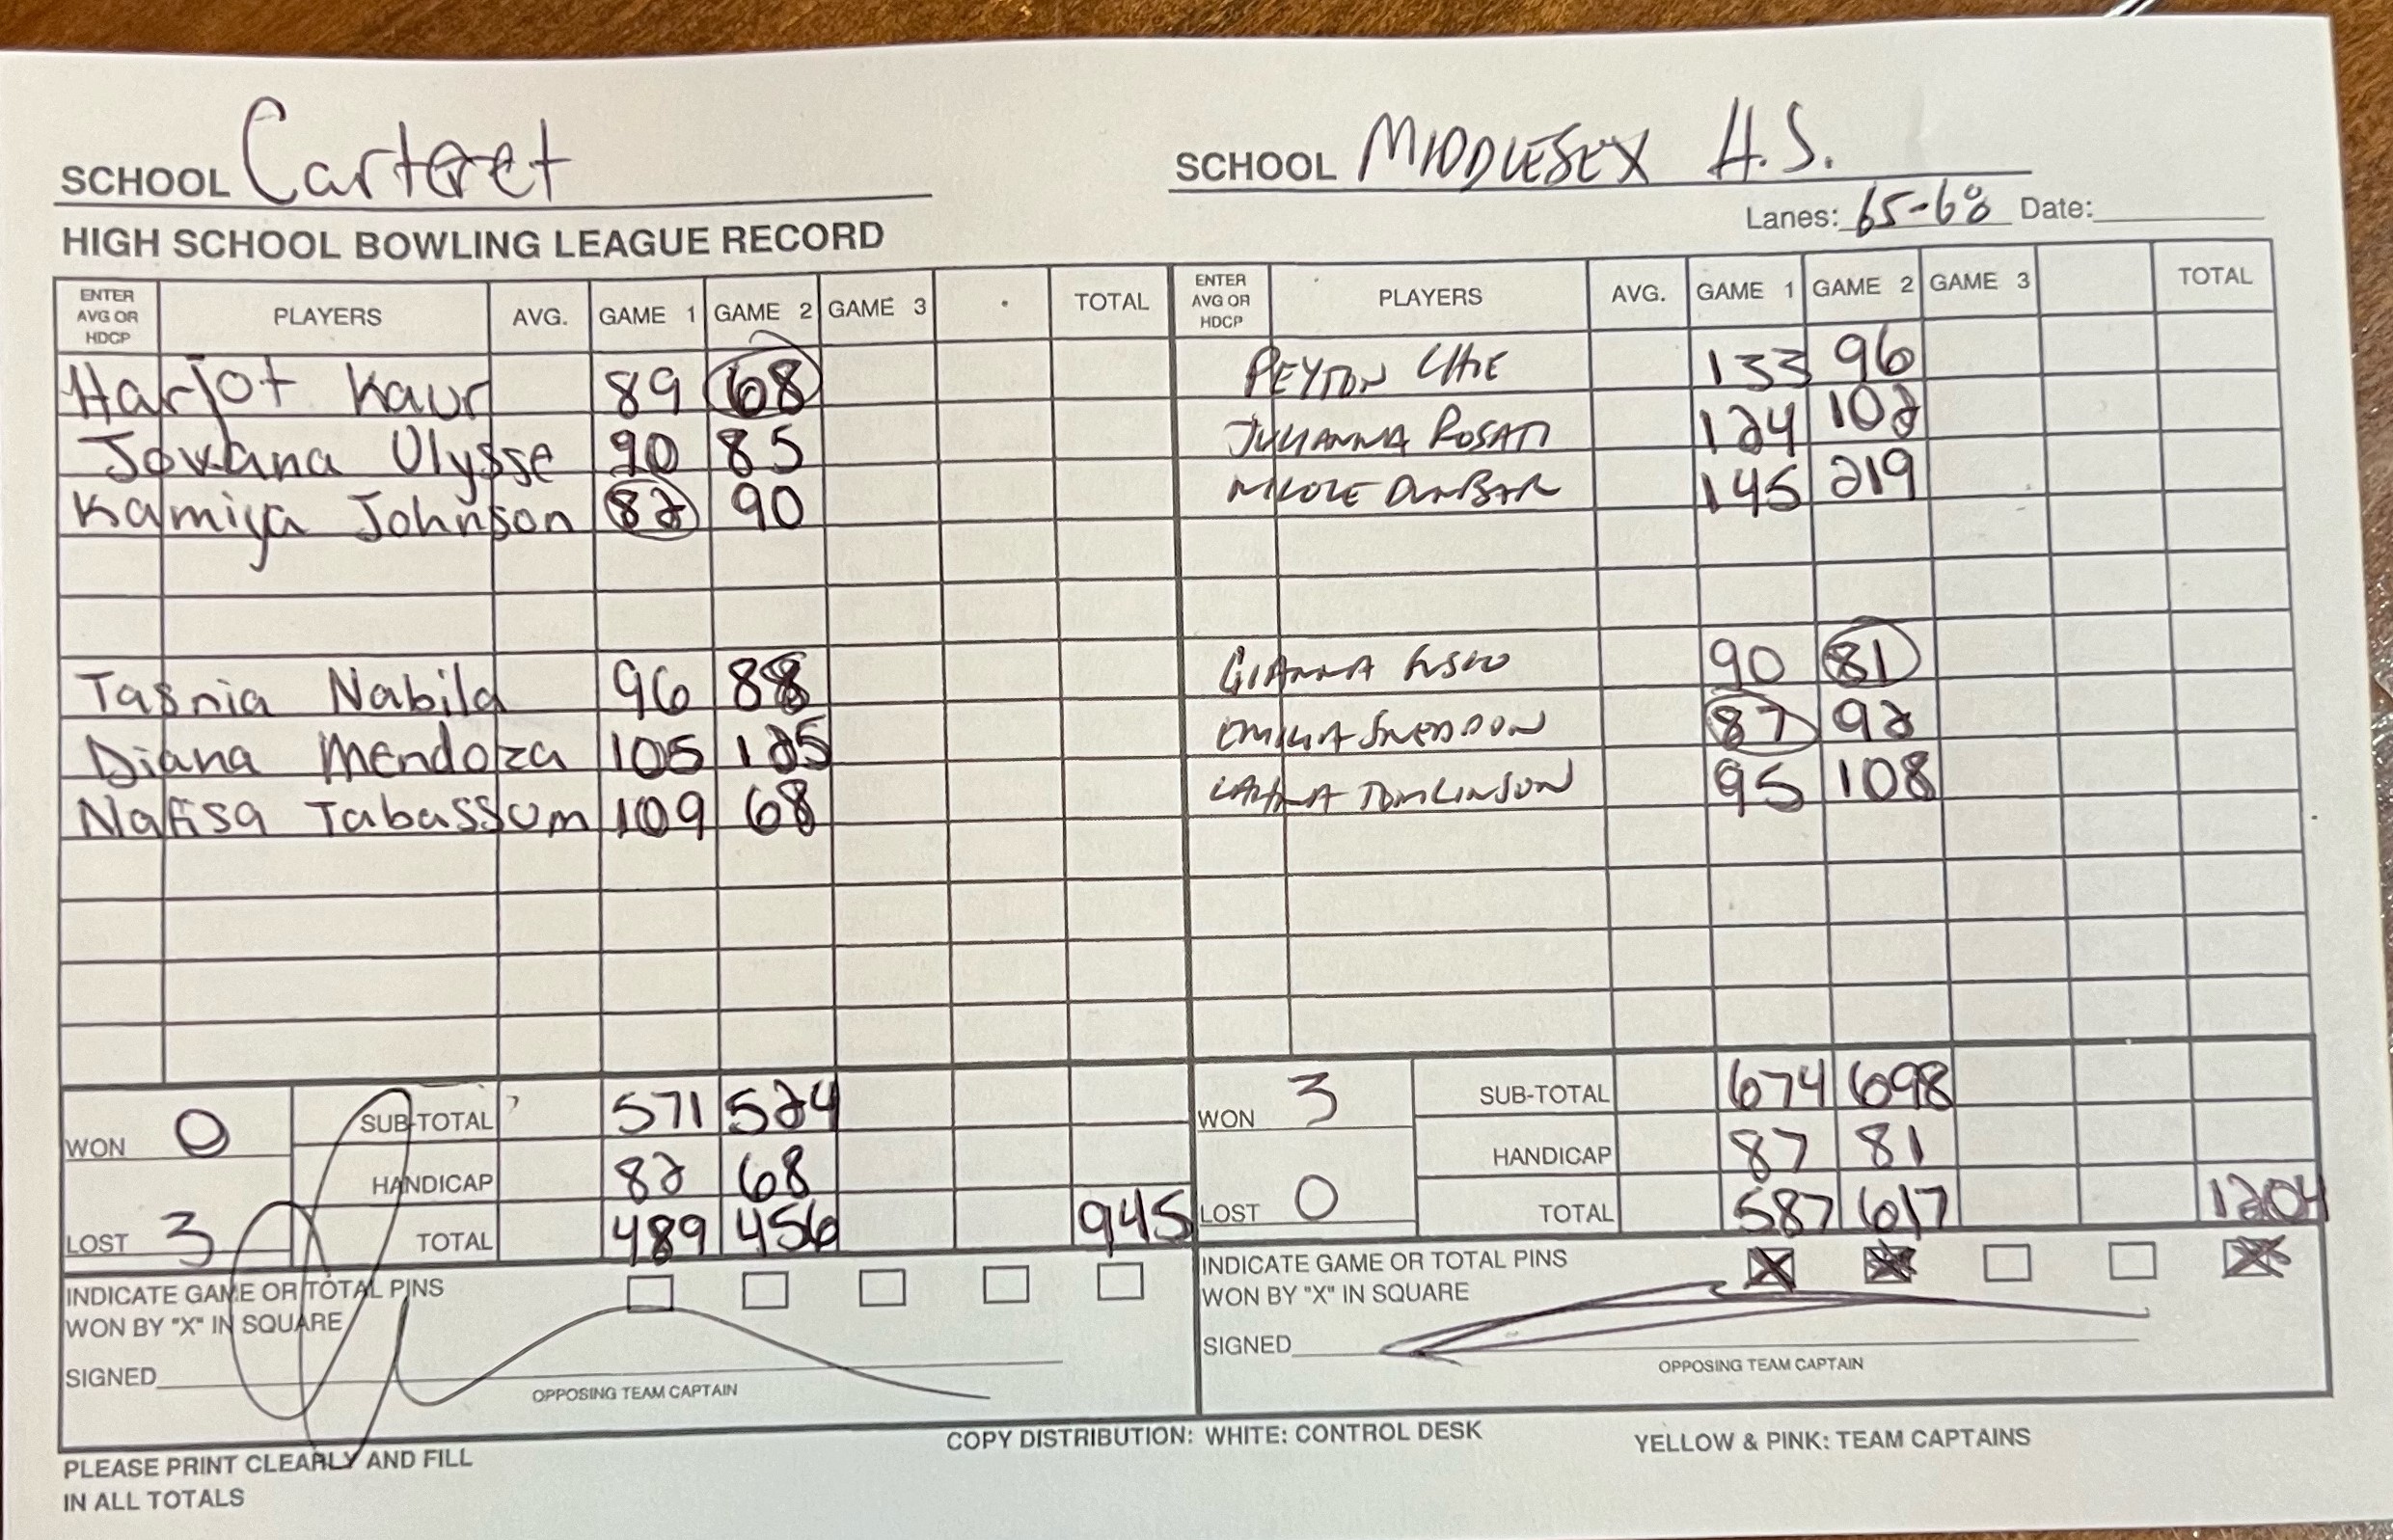 SCHOOL Carteret
SCHOOL MIDDLESEX H.S.
Lanes: 65-68 Date:
HIGH SCHOOL BOWLING LEAGUE RECORD
ENTER AVG OR HDCP PLAYERS AVG. GAME 1 GAME 2 GAME 3 TOTAL ENTER AVG OR HDCP PLAYERS AVG. GAME 1 GAME 2 GAME 3 TOTAL
Harjot Kaur 89 68 PEYTON 133 96
Jovana Ulysse 90 85 JULIANNA ROSATI 124 102
Kamiya Johnson 82 90 NICOLE DUNBAR 145 219
Tasnia Nabila 96 88 GIANNA 90 81
Diana Mendoza 105 125 EMILIA SNEDDON 87 92
Nafisa Tabassum 109 68 TOMLINSON 95 108
WON 0 SUB-TOTAL 571 524 WON 3 SUB-TOTAL 674 698
HANDICAP 82 68 HANDICAP 87 81
LOST 3 TOTAL 489 456 945 LOST 0 TOTAL 587 617 1204
INDICATE GAME OR TOTAL PINS
WON BY "X" IN SQUARE
SIGNED
OPPOSING TEAM CAPTAIN
INDICATE GAME OR TOTAL PINS X X X
WON BY "X" IN SQUARE
SIGNED
OPPOSING TEAM CAPTAIN
PLEASE PRINT CLEARLY AND FILL
IN ALL TOTALS
COPY DISTRIBUTION: WHITE: CONTROL DESK YELLOW & PINK: TEAM CAPTAINS